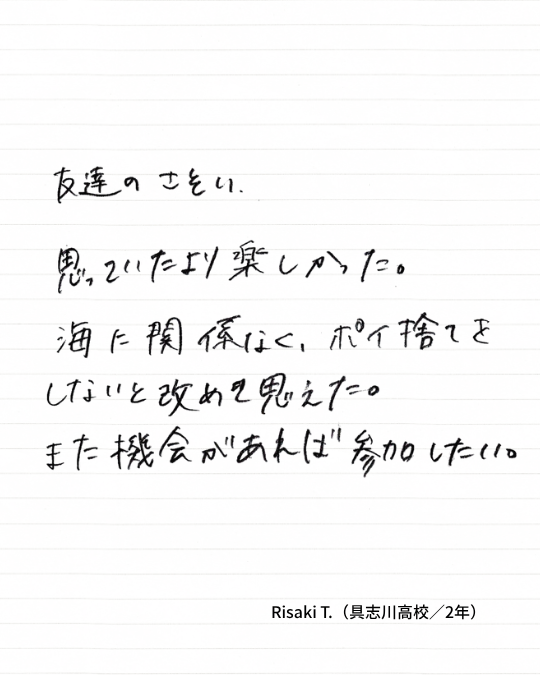 友達のさそい.
思っていたより楽しかった。
海に関係なく、ポイ捨てを
しないと改めて思えた。
また機会があれば参加したい。
Risaki T.（具志川高校／2年）